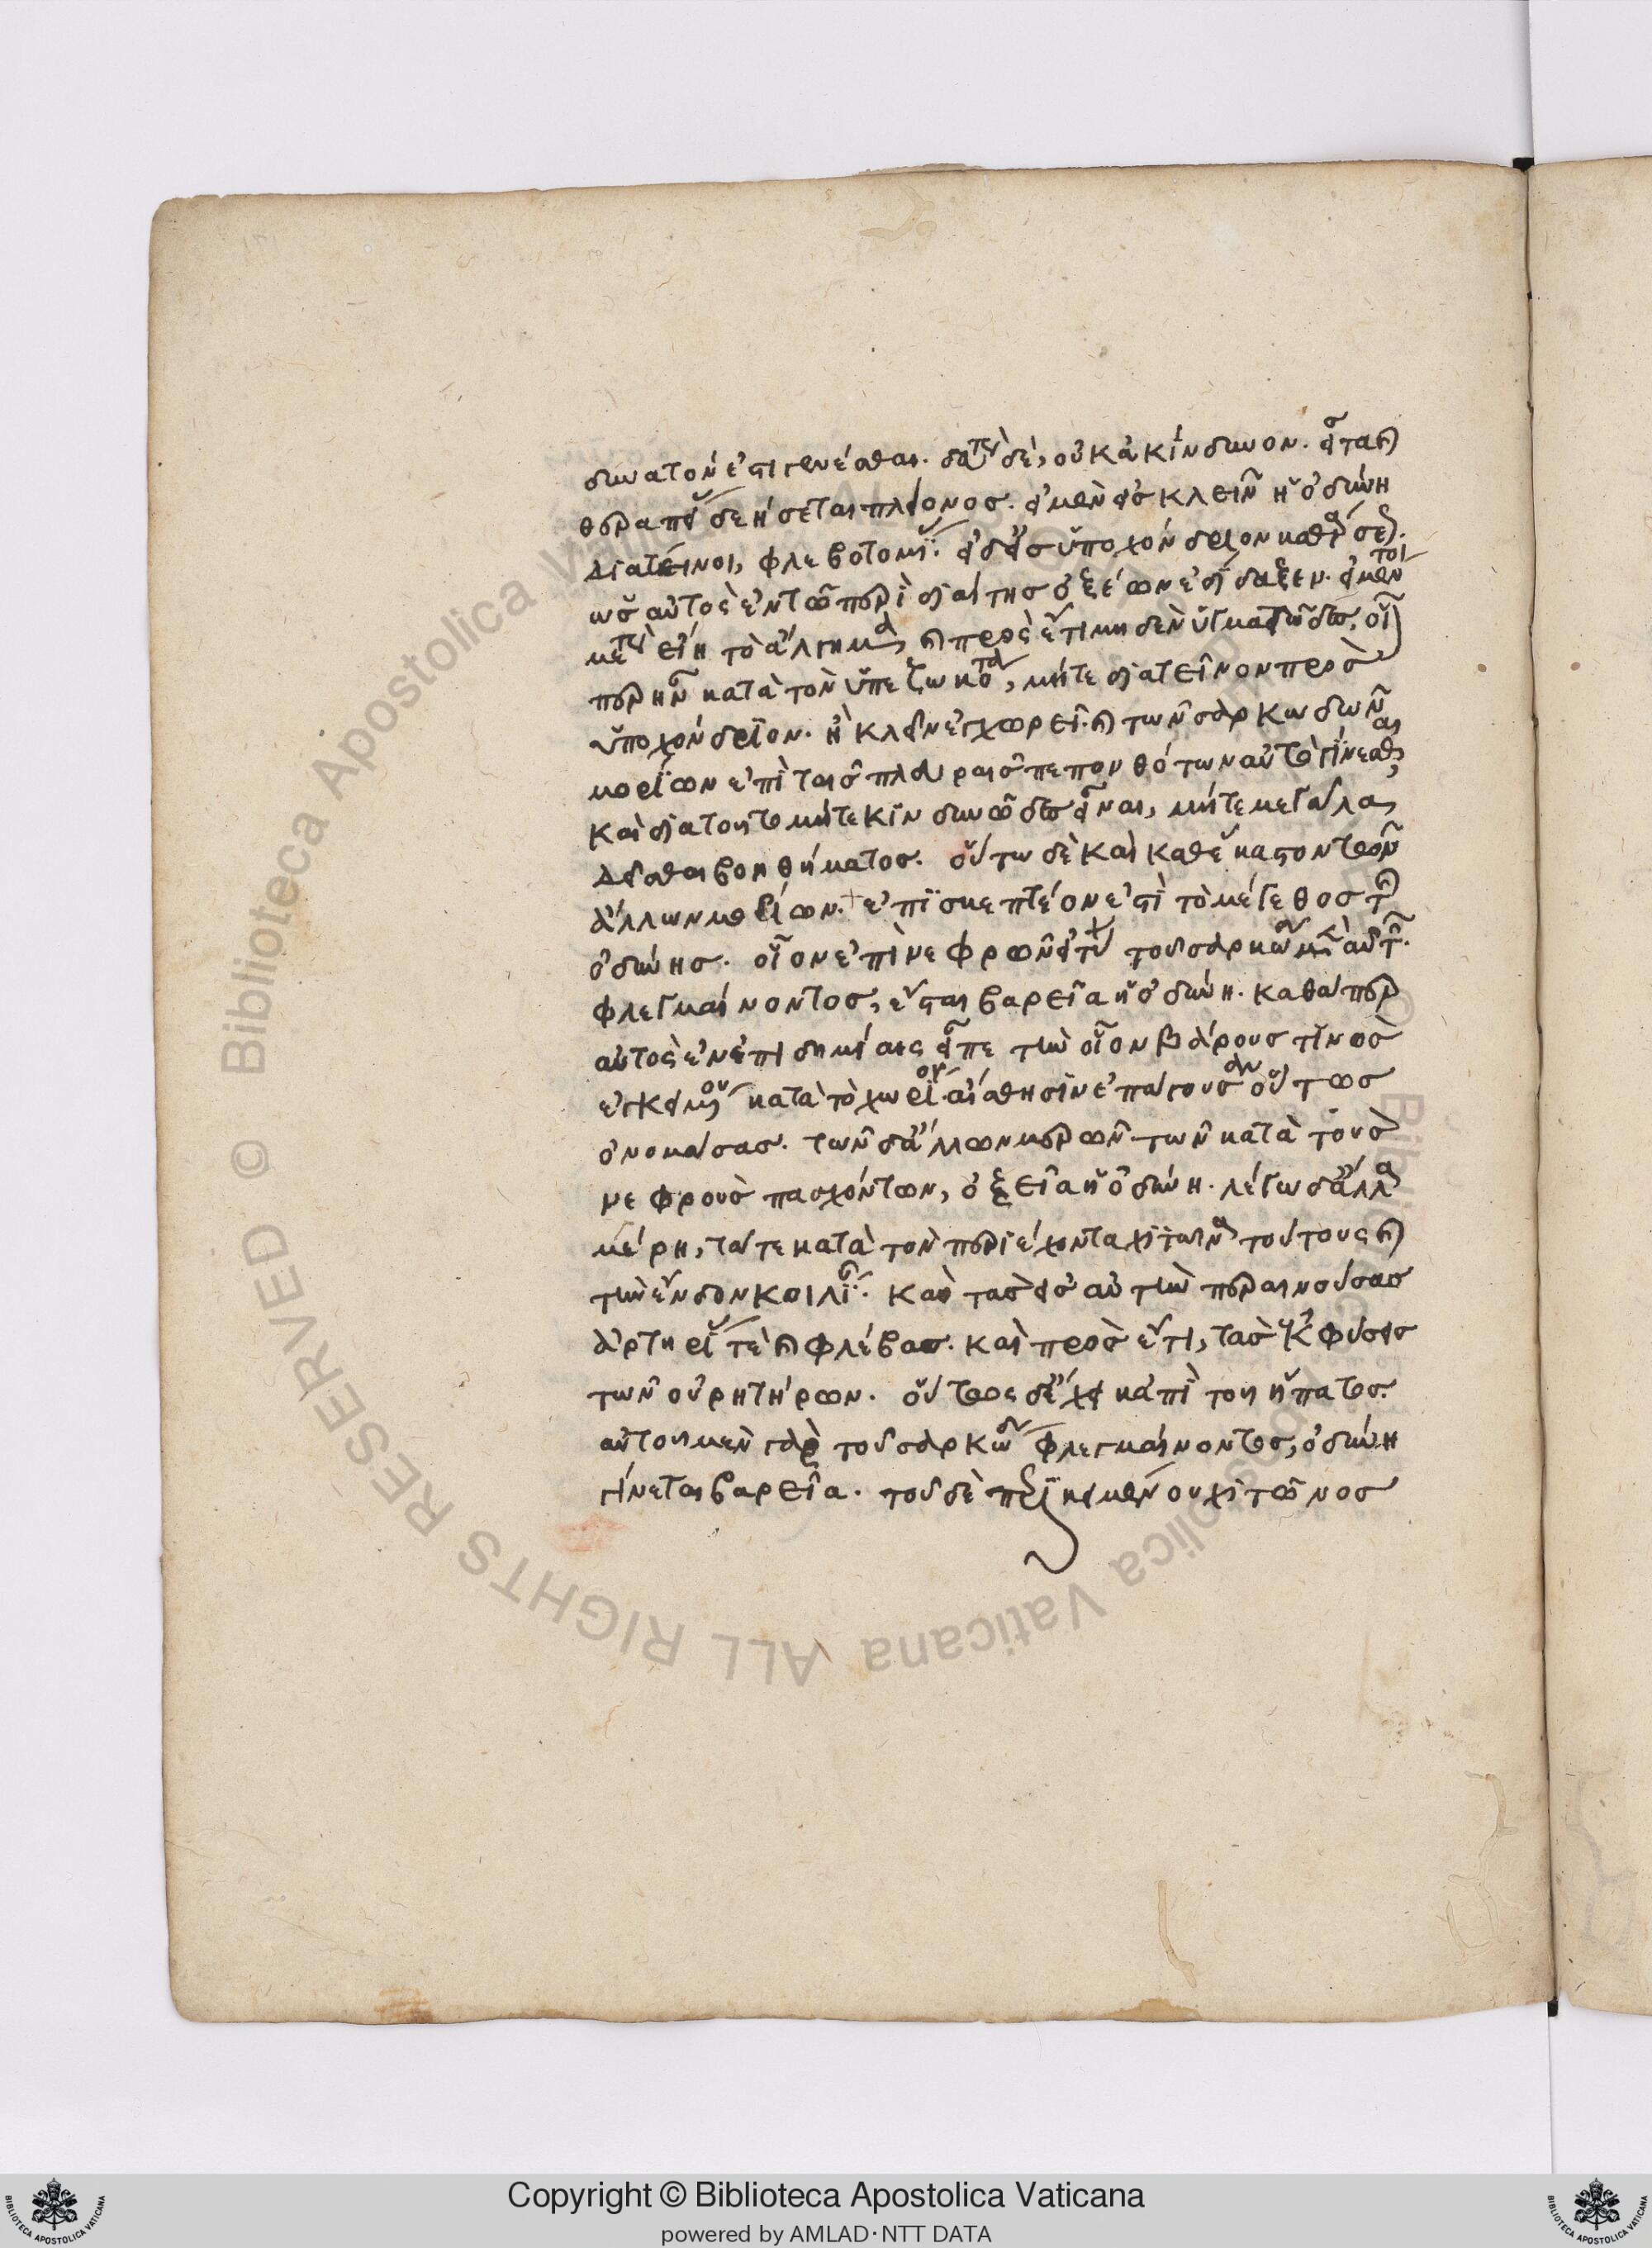 δυνατόν ἐστι γενέσθαι. δαπτὸν δὲ, οὐκ ἀκίνδυνον.
θεραπείας δεήσεται πλείονος. εἰ μὲν εἰς κλεῖν ἡ ὀδύνη
διατείνοι, φλεβοτομίας. εἰ δ' εἰς ὑποχόνδριον καθάρσεως.
ὡς αὐτὸς ἐν τῶ περὶ διαίτης ὀξέων ἐδίδαξεν. εἰ μέντοι
εἴη τὸ ἄλγημα, καὶ πρὸς ἔτι μηδὲν
κατὰ τὸν ὑπεζωκότα, μήτε διατεῖνον πρὸς
ὑποχόνδριον. ἢ κλεῖν ἐγχωρεῖ. καὶ τῶν σαρκωδῶν
μορίων ἐπὶ ταῖς πλευραῖς πεπονθότων αὐτὸ γίνεσθαι,
καὶ διὰ τοῦτο μήτε κινδυνῶδες εἶναι, μήτε μεγάλα
δεῖσθαι βοηθήματος. οὕτω δὲ καὶ καθ' ἕκαστον τῶν
ἄλλων μορίων. ἐπισκεπτέον ἐστὶ τὸ μέγεθος τῆς
ὀδύνης. οἷον ἐπὶ νεφρῶν τοῦ σαρκώδους αὐτῶν
φλεγμαίνοντος, ἔσται βαρεῖα ἡ ὀδύνη. καθάπερ
αὐτὸς ἐν ἐπιδημίαις εἶπε τὴν οἷον βάρους τινὸς
ἐγκειμένου κατὰ τὸ χωρίον αἴσθησιν ἐπάγουσαν οὕτως
ὀνομάσας. τῶν δ' ἄλλων μερῶν τῶν κατὰ τοὺς
νεφροὺς πασχόντων, ὀξεῖα ἡ ὀδύνη. λέγω δ' ἄλλα
μέρη, τά τε κατὰ τὸν περιέχοντα χιτῶνα τούτους καὶ
τὴν ἔνδον κοιλίαν. καὶ τὰς εἰς αὐτὴν περαινούσας
ἀρτηρίας τὲ καὶ φλέβας. καὶ πρὸς ἔτι, τὰς ἐκφύσεις
τῶν οὐρητήρων. οὕτως δ' ἔχει κἀπὶ τοῦ ἥπατος.
αὐτοῦ μὲν γὰρ τοῦ σαρκώδους φλεγμαίνοντος, ὀδύνη
γίνεται βαρεῖα. τοῦ δὲ περικειμένου χιτῶνος
Copyright © Biblioteca Apostolica Vaticana
powered by AMLAD·NTT DATA